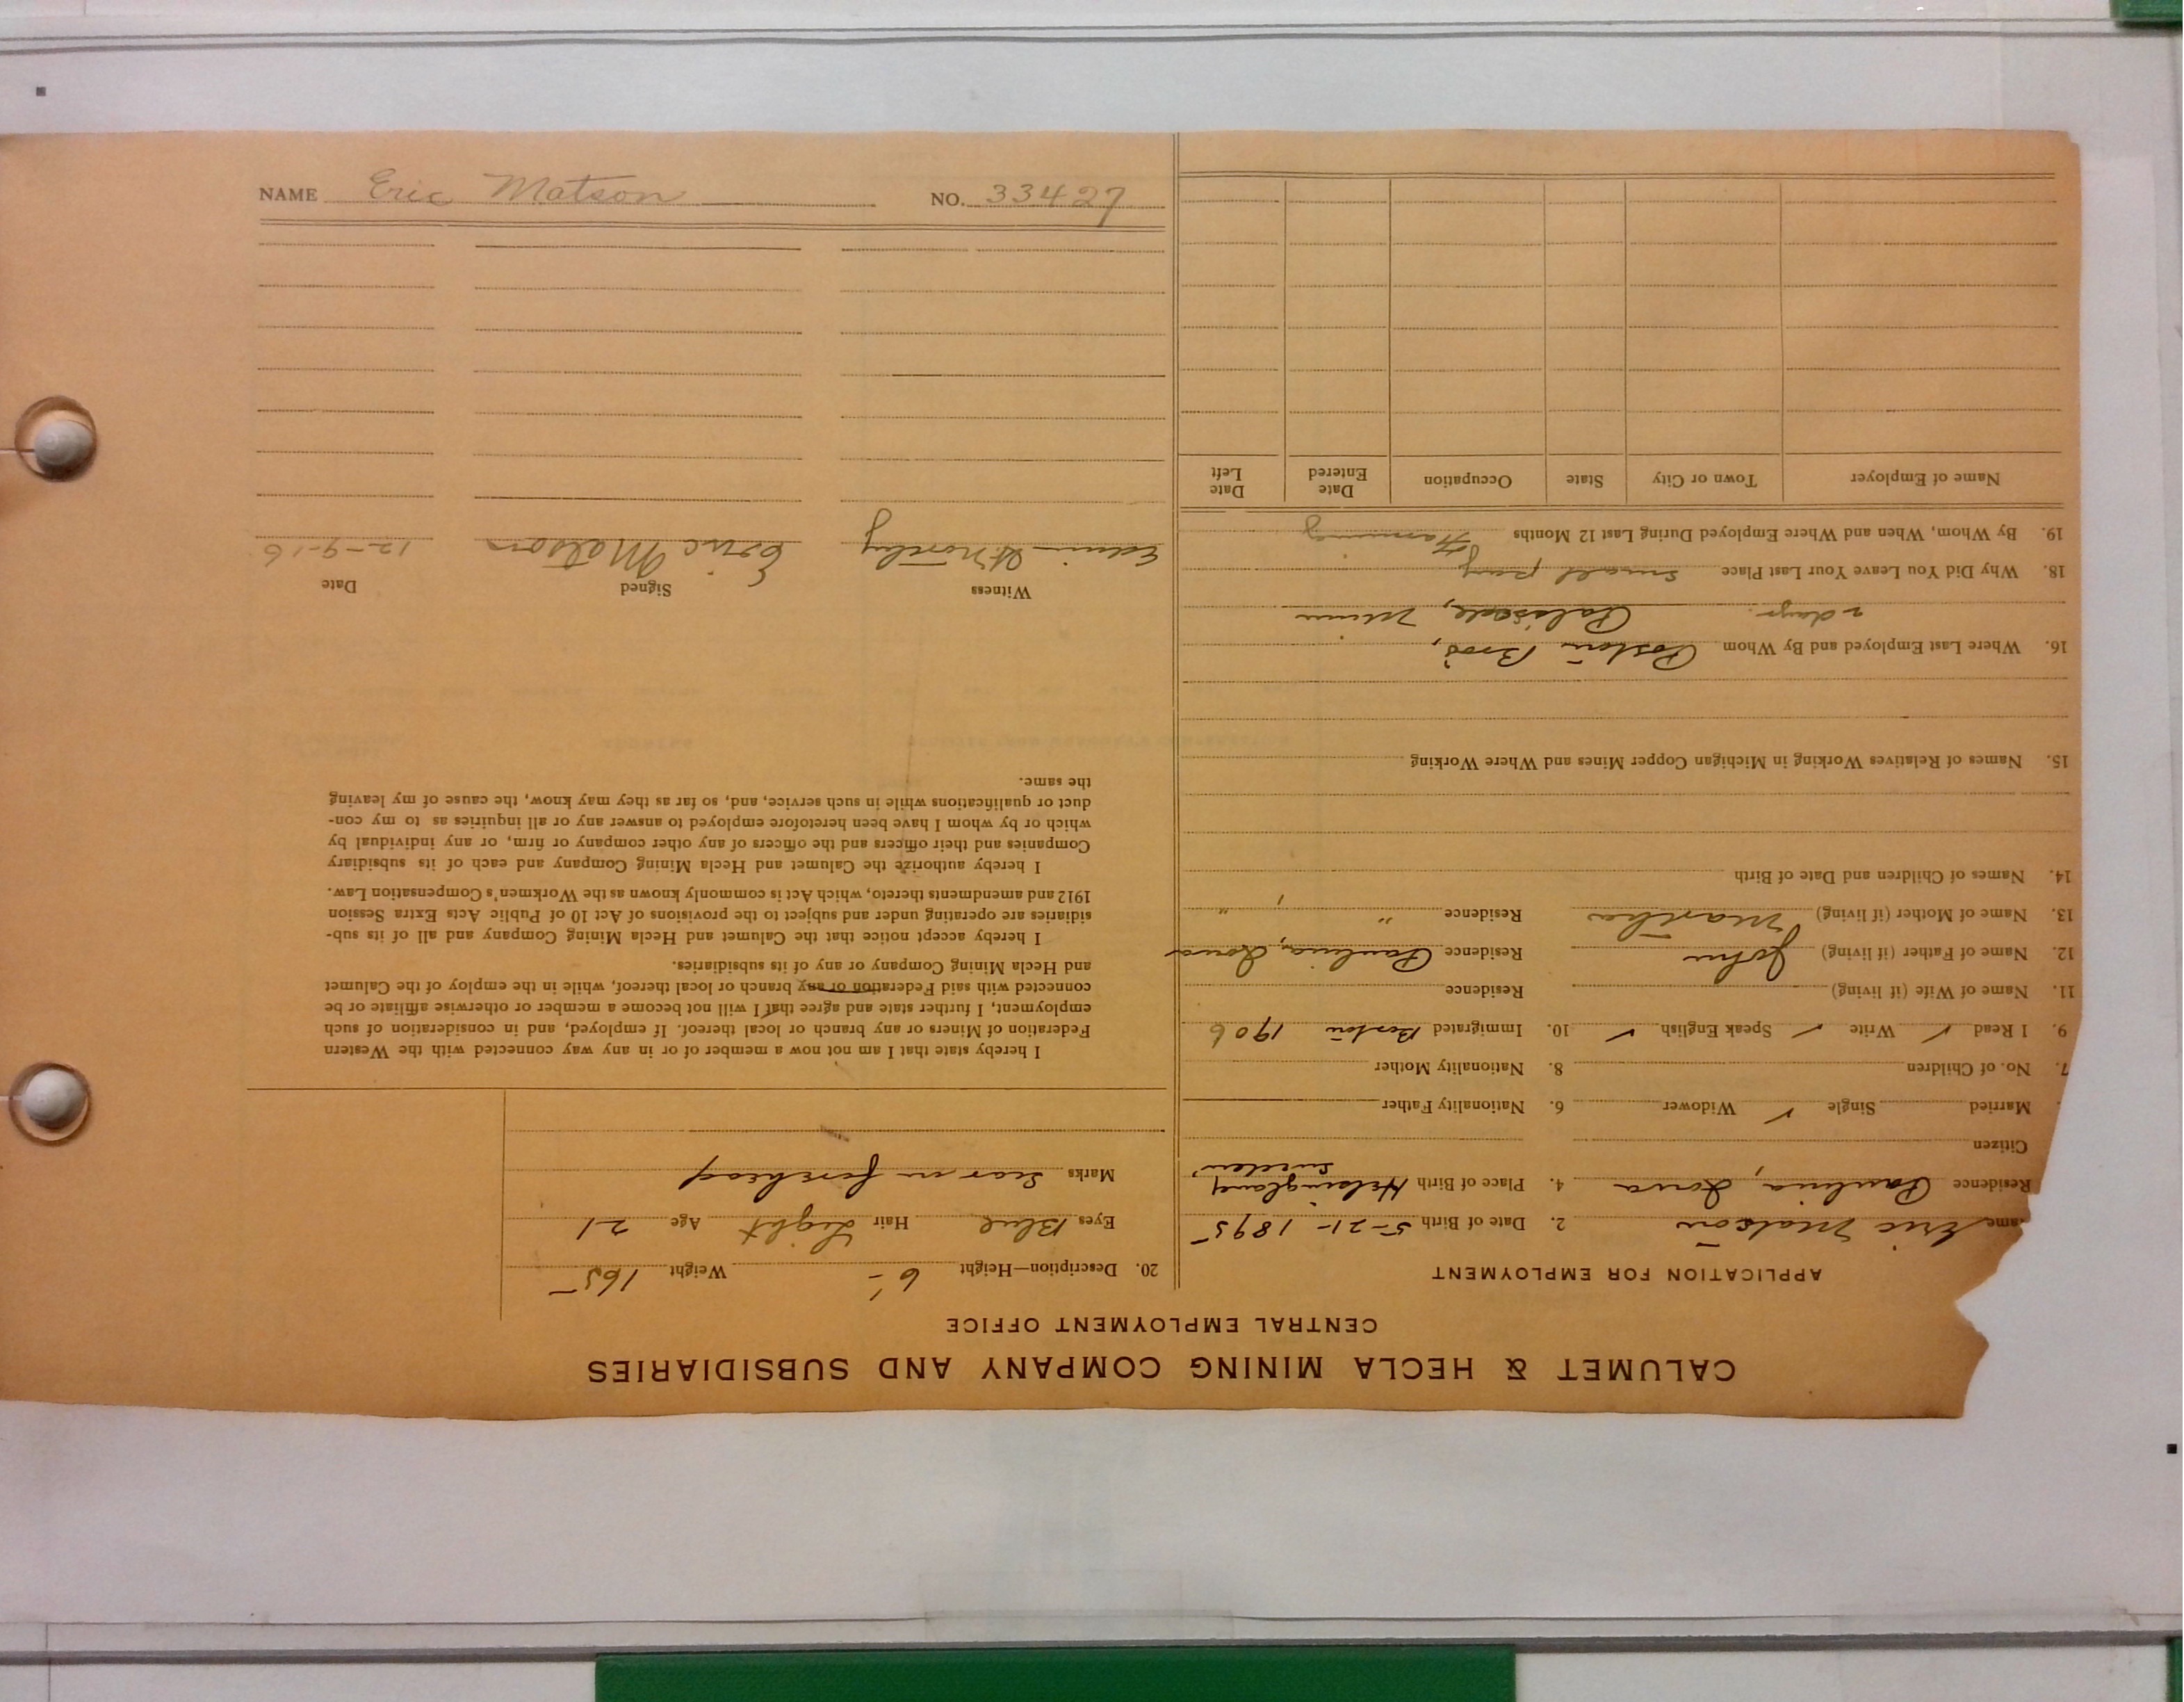 CALUMET & HECLA MINING COMPANY AND SUBSIDIARIES
CENTRAL EMPLOYMENT OFFICE
APPLICATION FOR EMPLOYMENT
ame Eric Matson 2. Date of Birth 5-21-1895
Residence Paulina, Iowa 4. Place of Birth Helsingland, Sweden
Citizen
Married Single ✓ Widower 6. Nationality Father
7. No. of Children 8. Nationality Mother
9. I Read ✓ Write ✓ Speak English ✓ 10. Immigrated Boston 1906
11. Name of Wife (if living) Residence
12. Name of Father (if living) John Residence Paulina, Iowa
13. Name of Mother (if living) Martha Residence " "
14. Names of Children and Date of Birth
15. Names of Relatives Working in Michigan Copper Mines and Where Working
16. Where Last Employed and By Whom Bros,
2 days. Minn
18. Why Did You Leave Your Last Place small pay
19. By Whom, When and Where Employed During Last 12 Months Farming
Name of Employer Town or City State Occupation Date Entered Date Left
20. Description—Height 6' - Weight 165
Eyes Blue Hair Light Age 21
Marks Scar on forehead
I hereby state that I am not now a member of or in any way connected with the Western
Federation of Miners or any branch or local thereof. If employed, and in consideration of such
employment, I further state and agree that I will not become a member or otherwise affiliate or be
connected with said Federation or any branch or local thereof, while in the employ of the Calumet
and Hecla Mining Company or any of its subsidiaries.
I hereby accept notice that the Calumet and Hecla Mining Company and all of its sub-
sidiaries are operating under and subject to the provisions of Act 10 of Public Acts Extra Session
1912 and amendments thereto, which Act is commonly known as the Workmen's Compensation Law.
I hereby authorize the Calumet and Hecla Mining Company and each of its subsidiary
Companies and their officers and the officers of any other company or firm, or any individual by
which or by whom I have been heretofore employed to answer any or all inquiries as to my con-
duct or qualifications while in such service, and, so far as they may know, the cause of my leaving
the same.
Witness Signed Date
Edwin Eric Matson 12-9-16
NAME Eric Matson NO. 33427